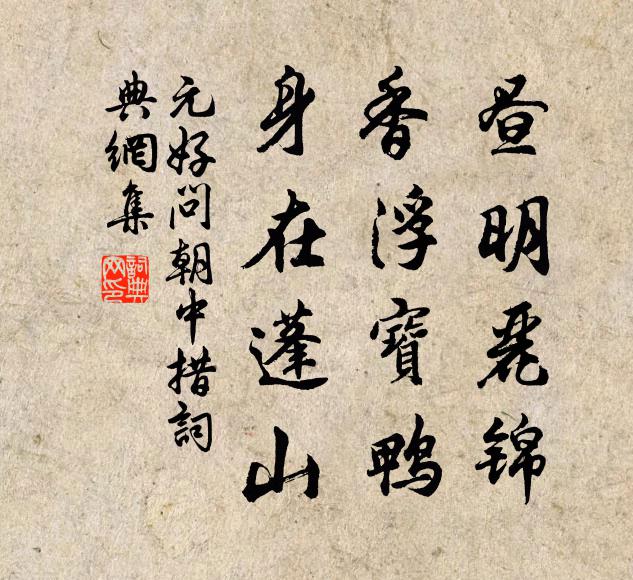 昼明丽锦
香浮寶鴨
身在蓬山
元好問朝中措詞
典網集
詞典網印